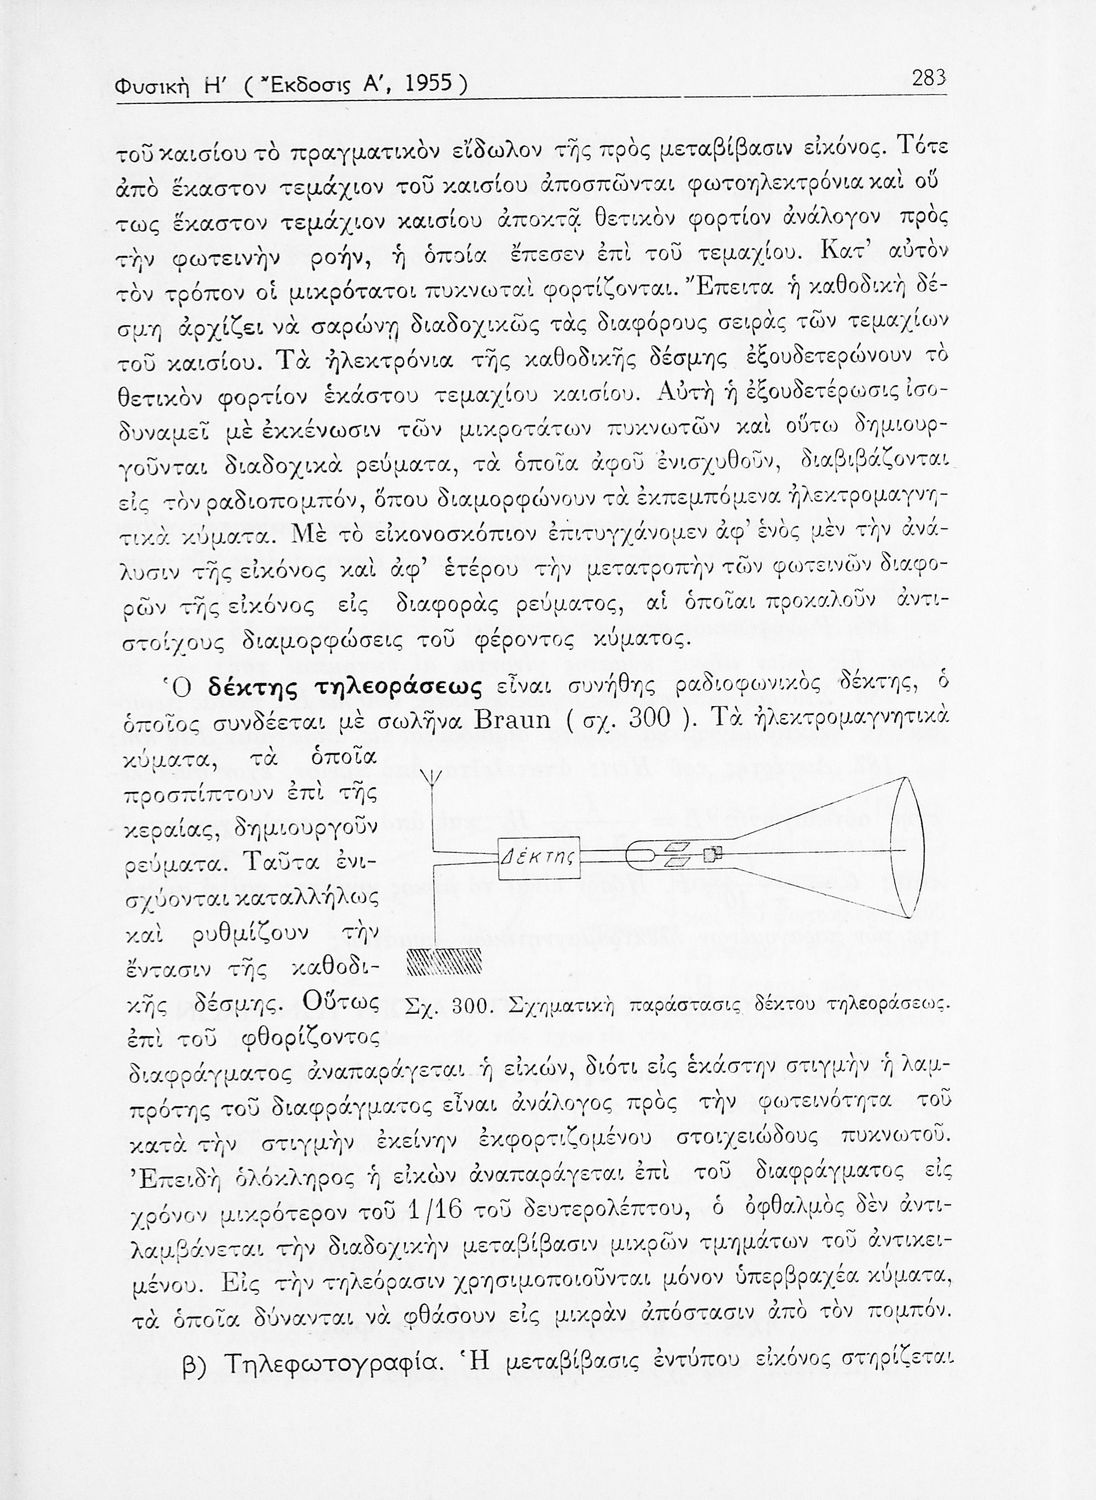 Φυσικὴ Η′ ( Ἔκδοσις Α′, 1955 ) 283
τοῦ καισίου τὸ πραγματικὸν εἴδωλον τῆς πρὸς μεταβίβασιν εἰκόνος. Τότε
ἀπὸ ἕκαστον τεμάχιον τοῦ καισίου ἀποσπῶνται φωτοηλεκτρόνια καὶ οὕ
τως ἕκαστον τεμάχιον καισίου ἀποκτᾷ θετικὸν φορτίον ἀνάλογον πρὸς
τὴν φωτεινὴν ροήν, ἡ ὁποία ἔπεσεν ἐπὶ τοῦ τεμαχίου. Κατ’ αὐτὸν
τὸν τρόπον οἱ μικρότατοι πυκνωταὶ φορτίζονται. Ἔπειτα ἡ καθοδικὴ δέ-
σμη ἀρχίζει νὰ σαρώνῃ διαδοχικῶς τὰς διαφόρους σειρὰς τῶν τεμαχίων
τοῦ καισίου. Τὰ ἠλεκτρόνια τῆς καθοδικῆς δέσμης ἐξουδετερώνουν τὸ
θετικὸν φορτίον ἑκάστου τεμαχίου καισίου. Αὐτὴ ἡ ἐξουδετέρωσις ἰσο-
δυναμεῖ μὲ ἐκκένωσιν τῶν μικροτάτων πυκνωτῶν καὶ οὕτω δημιουρ-
γοῦνται διαδοχικὰ ρεύματα, τὰ ὁποῖα ἀφοῦ ἐνισχυθοῦν, διαβιβάζονται
εἰς τὸν ραδιοπομπόν, ὅπου διαμορφώνουν τὰ ἐκπεμπόμενα ἠλεκτρομαγνη-
τικὰ κύματα. Μὲ τὸ εἰκονοσκόπιον ἐπιτυγχάνομεν ἀφ’ ἑνὸς μὲν τὴν ἀνά-
λυσιν τῆς εἰκόνος καὶ ἀφ’ ἑτέρου τὴν μετατροπὴν τῶν φωτεινῶν διαφο-
ρῶν τῆς εἰκόνος εἰς διαφορὰς ρεύματος, αἱ ὁποῖαι προκαλοῦν ἀντι-
στοίχους διαμορφώσεις τοῦ φέροντος κύματος.
Ὁ δέκτης τηλεοράσεως εἶναι συνήθης ραδιοφωνικὸς δέκτης, ὁ
ὁποῖος συνδέεται μὲ σωλῆνα Braun ( σχ. 300 ). Τὰ ἠλεκτρομαγνητικὰ
κύματα, τὰ ὁποῖα
προσπίπτουν ἐπὶ τῆς
κεραίας, δημιουργοῦν
ρεύματα. Ταῦτα ἐνι-
σχύονται καταλλήλως
καὶ ρυθμίζουν τὴν
ἔντασιν τῆς καθοδι-
κῆς δέσμης. Οὕτως
ἐπὶ τοῦ φθορίζοντος
Δέκτης
Σχ. 300. Σχηματικὴ παράστασις δέκτου τηλεοράσεως.
διαφράγματος ἀναπαράγεται ἡ εἰκών, διότι εἰς ἑκάστην στιγμὴν ἡ λαμ-
πρότης τοῦ διαφράγματος εἶναι ἀνάλογος πρὸς τὴν φωτεινότητα τοῦ
κατὰ τὴν στιγμὴν ἐκείνην ἐκφορτιζομένου στοιχειώδους πυκνωτοῦ.
Ἐπειδὴ ὁλόκληρος ἡ εἰκὼν ἀναπαράγεται ἐπὶ τοῦ διαφράγματος εἰς
χρόνον μικρότερον τοῦ 1/16 τοῦ δευτερολέπτου, ὁ ὀφθαλμὸς δὲν ἀντι-
λαμβάνεται τὴν διαδοχικὴν μεταβίβασιν μικρῶν τμημάτων τοῦ ἀντικει-
μένου. Εἰς τὴν τηλεόρασιν χρησιμοποιοῦνται μόνον ὑπερβραχέα κύματα,
τὰ ὁποῖα δύνανται νὰ φθάσουν εἰς μικρὰν ἀπόστασιν ἀπὸ τὸν πομπόν.
β) Τηλεφωτογραφία. Ἡ μεταβίβασις ἐντύπου εἰκόνος στηρίζεται